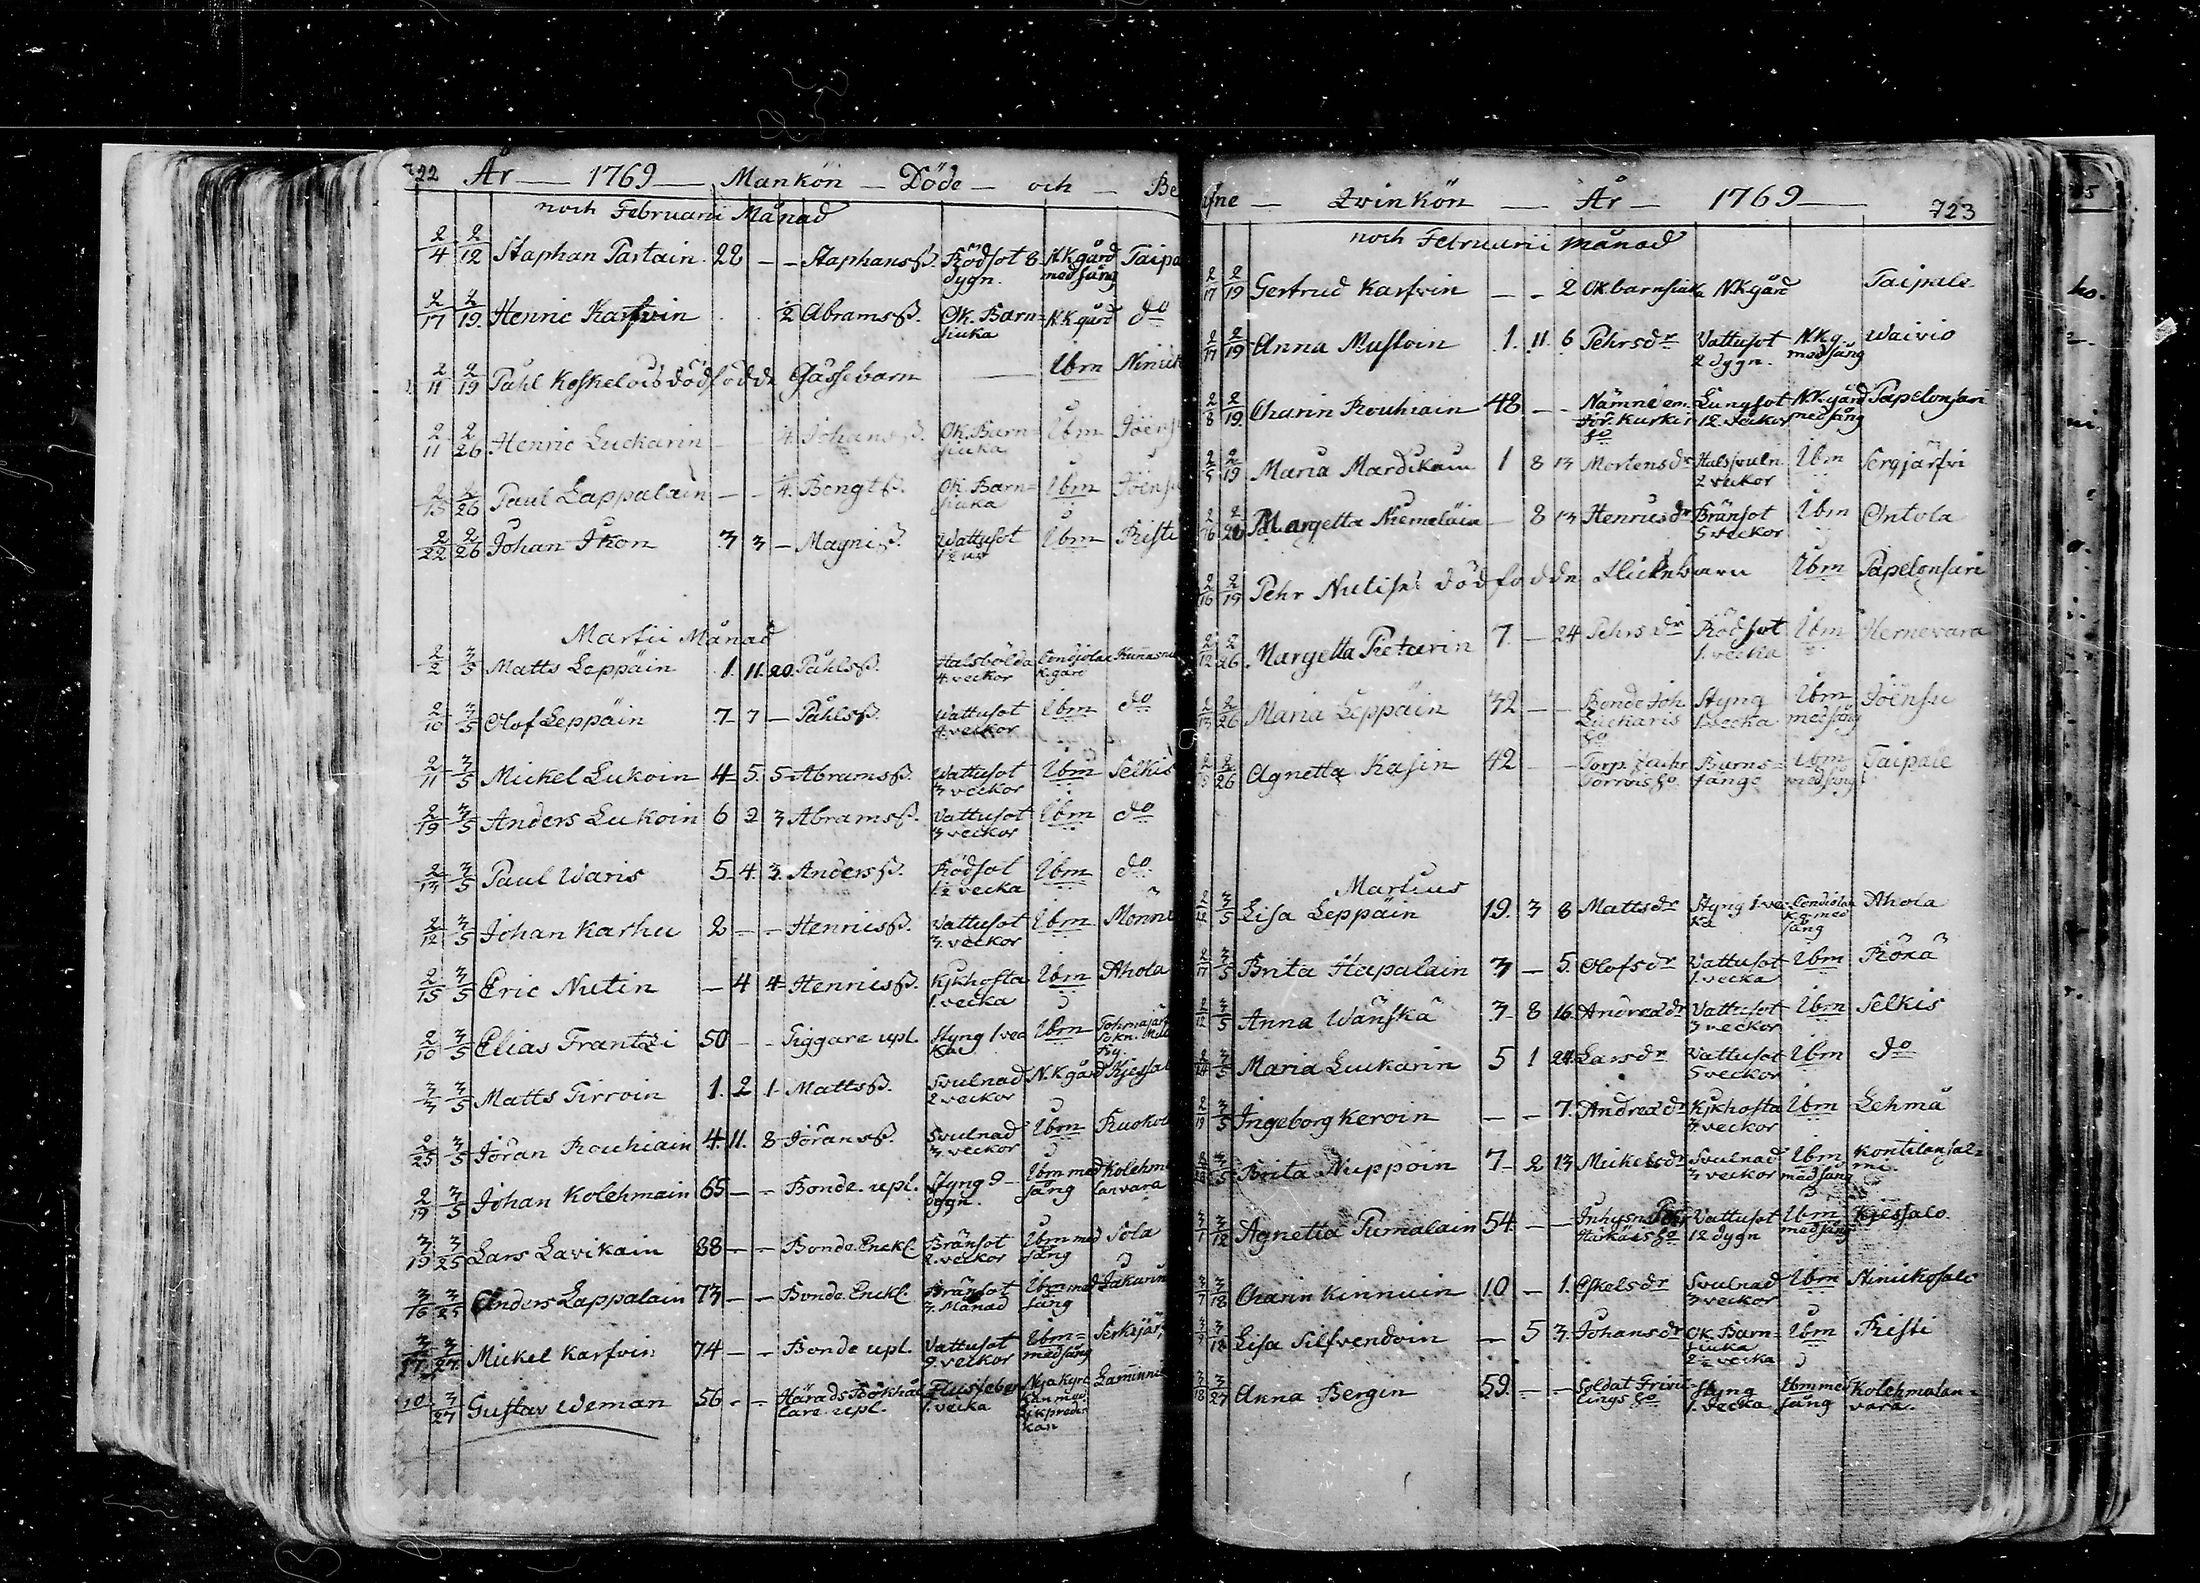 722 År — 1769 — Mankön — Döde — och — Be
noch Februarii Månad
2/4 2/12 Staphan Partain 28 — — Staphansß. Rödsot 8 dygn. N.K.gård med sång Taipa
2/17 2/19 Henric Karfvin . . 2 Abramsß. Ok. Barn= siuka N.K.gård do
2/11 2/19 Påhl Koskelois dödfödde Gåssebarn — Ibm
2/11 2/26 Henric Luckarin — — 4 Johansß. Ok. Barn= siuka Ibm Jöensu
2/15 2/26 Paul Lappalain — — 4. Bengtß. Ok. Barn= siuka Ibm Jöensu
2/22 2/26 Johan Ikon 3 3 — Magniß. Wattusot 1½ år Ibm Risti
Martii Månad
2/2 3/5 Matts Leppäin 1. 11. 20. Påhlsß. Halsbölda 4. veckor Condiola K.gård
2/10 3/5 Olof Leppäin 7 7 — Påhlsß. Wattusot 4. veckor Ibm do
2/11 3/5 Mickel Lukoin 4 5. 5 Abramsß. Wattusot 3 veckor Ibm Selkis
2/19 3/5 Anders Lukoin 6 2 3 Abramsß. Vattusot 3 veckor Ibm do
2/17 3/5 Paul Waris 5 4. 3. Andersß. Rödsot 1½ vecka Ibm do
2/12 3/5 Johan Karhu 2 — — Henricsß. Vattusot 3. veckor Ibm Mönni
2/15 3/5 Eric Nutin — 4 4 Henricsß. Kjkhosta 1. vecka Ibm Ahola
2/10 3/5 Elias Frantzi 50 — — Tiggare upl. Styng 1 vec ka Ibm
3/3 3/5 Matts Tirroin 1. 2 1 Mattsß. Svulnad 2 veckor N.K.gård Kjessal
2/25 3/5 Jöran Rouhiain 4. 11. 8 Jöransß. Svulnad 3. veckor Ibm Ruokol
2/19 3/5 Johan Kolehmain 65 — — Bonde. upl. Styng 9 dygn. Ibm med sång Kolehma lanvara
3/19 3/25 Lars Lavikain 88 — — Bonde. Enckl. Bränsot 2. veckor Ibm med sång Sola
3/16 3/25 Anders Lappalain 73 — — Bonde. Enckl. Bränsot 3. Månad Ibm med sång Jakarin
3/17 3/27 Mickel Karfvin 74 — — Bonde upl. Vattusot 9 veckor Ibm= med sång
10 3/27 Gustav Weman 56 — — Härads Bokhål lare upl. Flussfeber 1. vecka Nya kyrk kan med Likpredi kan
fne — Qvinkön — År — 1769 — 723
noch Februarii månad
2/17 2/19 Gertrud Karfvin — — 2 Ok. barnsiuka N.K.gård Taipale
2/17 2/19 Anna Mustoin 1. 11. 6 Pehrsdr Vattusot 2 dygn. N.K.g. med sång Waivio
2/8 2/19 Charin Rouhiain 48 — — Nämne em. Jör. Kurki ho Lungsot 12. veckor N.K.gård med sång Papelonsari
2/5 2/19 Maria Mardikain 1 8 13 Mortensdr Halssvuln 2 veckor Ibm Sergjärfvi
2/16 2/20 Margetta Niemeläin — 8 13 Henricsdr Bränsot 5 veckor Ibm Ontola
2/16 2/19 Pehr Nulises dödfodde Flickebarn Ibm Papelonsari
2/12 2/26 Margetta Pietarin 7 — 24 Pehrsdr Rödsot 1. vecka Ibm Hernevara
2/13 2/26 Maria Leppäin 32 — — Bonde Joh Luckaris ho Styng 1 vecka Ibm med sång Jöensu
26 Agnetta Kasin 42 — — Torp. Törrois ho Barns= sänge Ibm med sång Taipale
Martius
3/5 Lisa Leppäin 19. 3 8 Mattsdr Styng 1 vec ka Condiola K.g. med sång Ahola
2/17 3/5 Brita Hapalain 3 — 5. Olofsdr Vattusot 1. vecka Ibm Röxä
2/12 3/5 Anna Wänskä 3 8 16. Andreædr Vattusot 3 veckor Ibm Selkis
3/5 Maria Luckarin 5 1 24. Larsdr Vattusot 5 veckor Ibm do
2/19 3/5 Ingeborg Keroin — — 7. Andreædr Kjkhosta 3. veckor Ibm Lehmä
3/5 Brita Nuppoin 7 2 13 Mickelsdr Svulnad 3 veckor Ibm med sång Kontilansal= mi.
3/1 3/12 Agnetta Pumalain 54 — — Inhysn Pehr ho Vattusot 12 dygn Ibm med sång Kjessalo
3/7 3/18 Charin Kinnuin 10 — 1. Eskelsdr Svulnad 3 veckor Ibm Ninickosalo
3/9 3/18 Lisa Silfvendoin — 5 3. Johansdr Ok. Barn= siuka 2½ vecka Ibm Risti
3/18 3/27 Anna Bergin 59. — — Soldat Frivil lings ho Styng 1. vecka Ibm med sång Kolehmalan= vara.